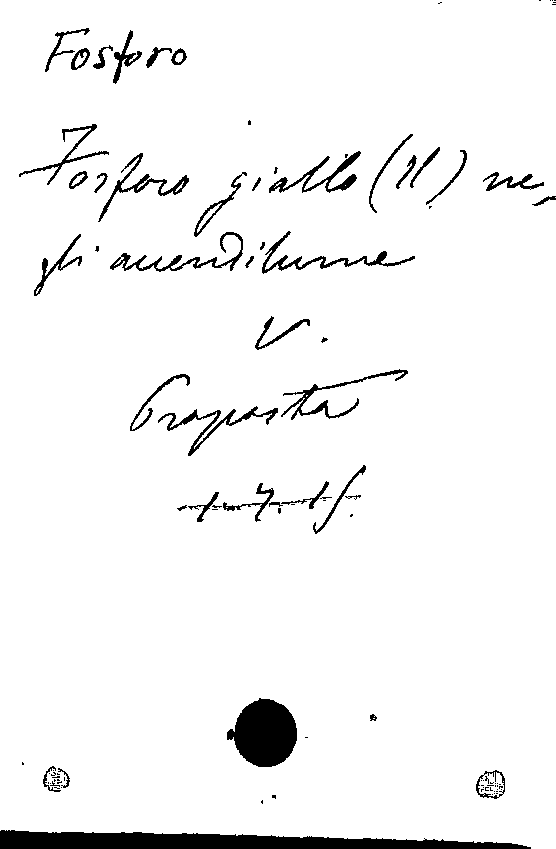 Fosforo
Fosforo giallo (Il) ne-
gli accendilume
V.
Proposta